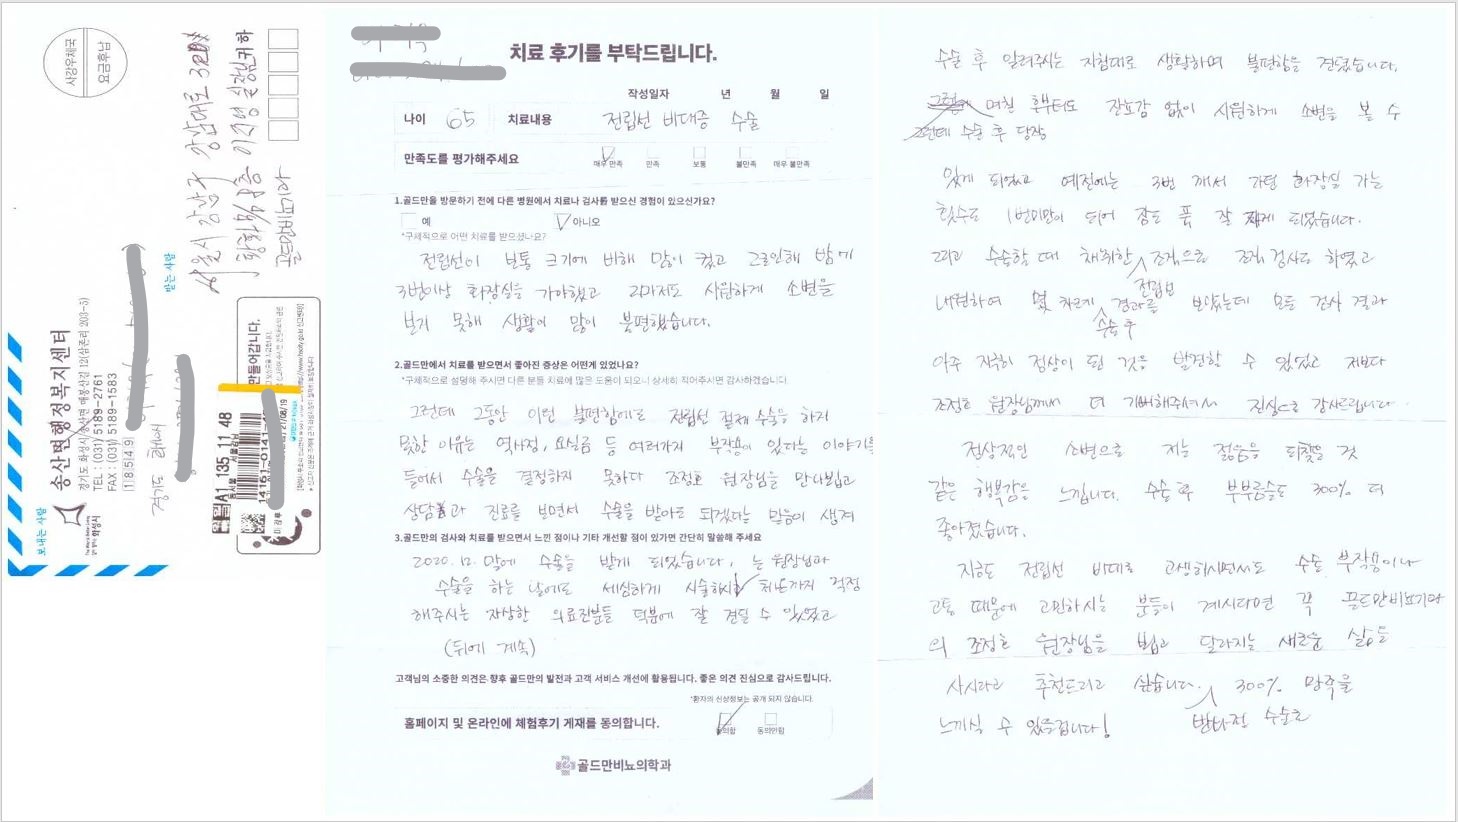 사강우체국
요금후납
보내는 사람
The Way to Better Living
화성시
송산면행정복지센터
경기도 화성시 송산면 매봉산길 12(삼존리 203-3)
TEL : (031) 5189-2761
FAX : (031) 5189-1583
1 8 5 4 9
경기도 화성시
받는 사람
서울시 강남구 강남대로
골드만비뇨기과
귀하
만들어갑니다.
A1 135 11 48
치료 후기를 부탁드립니다.
작성일자 년 월 일
나이 65 치료내용 전립선 비대증 수술
만족도를 평가해주세요
매우 만족 만족 보통 불만족 매우 불만족
1.골드만을 방문하기 전에 다른 병원에서 치료나 검사를 받으신 경험이 있으신가요?
예 아니오
*구체적으로 어떤 치료를 받으셨나요?
전립선이 보통 크기에 비해 많이 컸고 그로인해 밤에
3번이상 화장실을 가야했고 그마저도 시원하게 소변을
보지 못해 생활이 많이 불편했습니다.
2.골드만에서 치료를 받으면서 좋아진 증상은 어떻게 있었나요?
*구체적으로 설명해 주시면 다른 분들 치료에 많은 도움이 되오니 상세히 적어주시면 감사하겠습니다.
그런데 그동안 이런 불편함에도 전립선 절제 수술을 하지
못한 이유는 역사정, 요실금 등 여러가지 부작용이 있다는 이야기를
들어서 수술을 결정하지 못하다 조정호 원장님을 만나뵙고
상담과 진료를 보면서 수술을 받아도 되겠다는 믿음이 생겨
3.골드만의 검사와 치료를 받으면서 느낀 점이나 기타 개선할 점이 있가면 간단히 말씀해 주세요
2020. 12. 말에 수술을 받게 되었습니다. 는 원장님과
수술을 하는 날에도 세심하게 시술하시 처음까지 걱정
해주시는 자상한 의료진분들 덕분에 잘 견딜 수 있었고
(뒤에 계속)
고객님의 소중한 의견은 향후 골드만의 발전과 고객 서비스 개선에 활용됩니다. 좋은 의견 진심으로 감사드립니다.
*환자의 신상정보는 공개 되지 않습니다.
홈페이지 및 온라인에 체험후기 게재를 동의합니다. 동의함 동의안함
골드만비뇨의학과
수술 후 알려주시는 지침대로 생활하며 불편함을 견뎠습니다.
며친 후부터도 잔뇨감 없이 시원하게 소변을 볼 수
그런데 수술 후 당장
있게 되었고 예전에는 3번 깨서 가던 화장실 가는
횟수도 1번미만이 되어 잠도 푹 잘 자게 되었습니다.
그리고 수술할 때 채취한 조직으로 조직 검사도 하였고
전립선
내원하여 몇 차례 경과를 보았는데 모든 검사 결과
수술 후
아주 작히 정상이 된 것을 발견할 수 있었고 저보다
조정호 원장님께서 더 기뻐해주셔서 진심으로 감사드립니다.
정상적인 소변으로 저는 젊음을 되찾은 것
같은 행복감을 느낍니다. 수술 후 부부금슬도 300% 더
좋아졌습니다.
지금도 전립선 비대로 고생하시면서도 수술 부작용이나
고통 때문에 고민하시는 분들이 계시다면 꼭 골드만비뇨기과
의 조정호 원장님을 뵙고 달라지는 새로운 삶을
사시라고 추천드리고 싶습니다. 300% 만족을
느끼실 수 있을겁니다! 받으시면 수술후